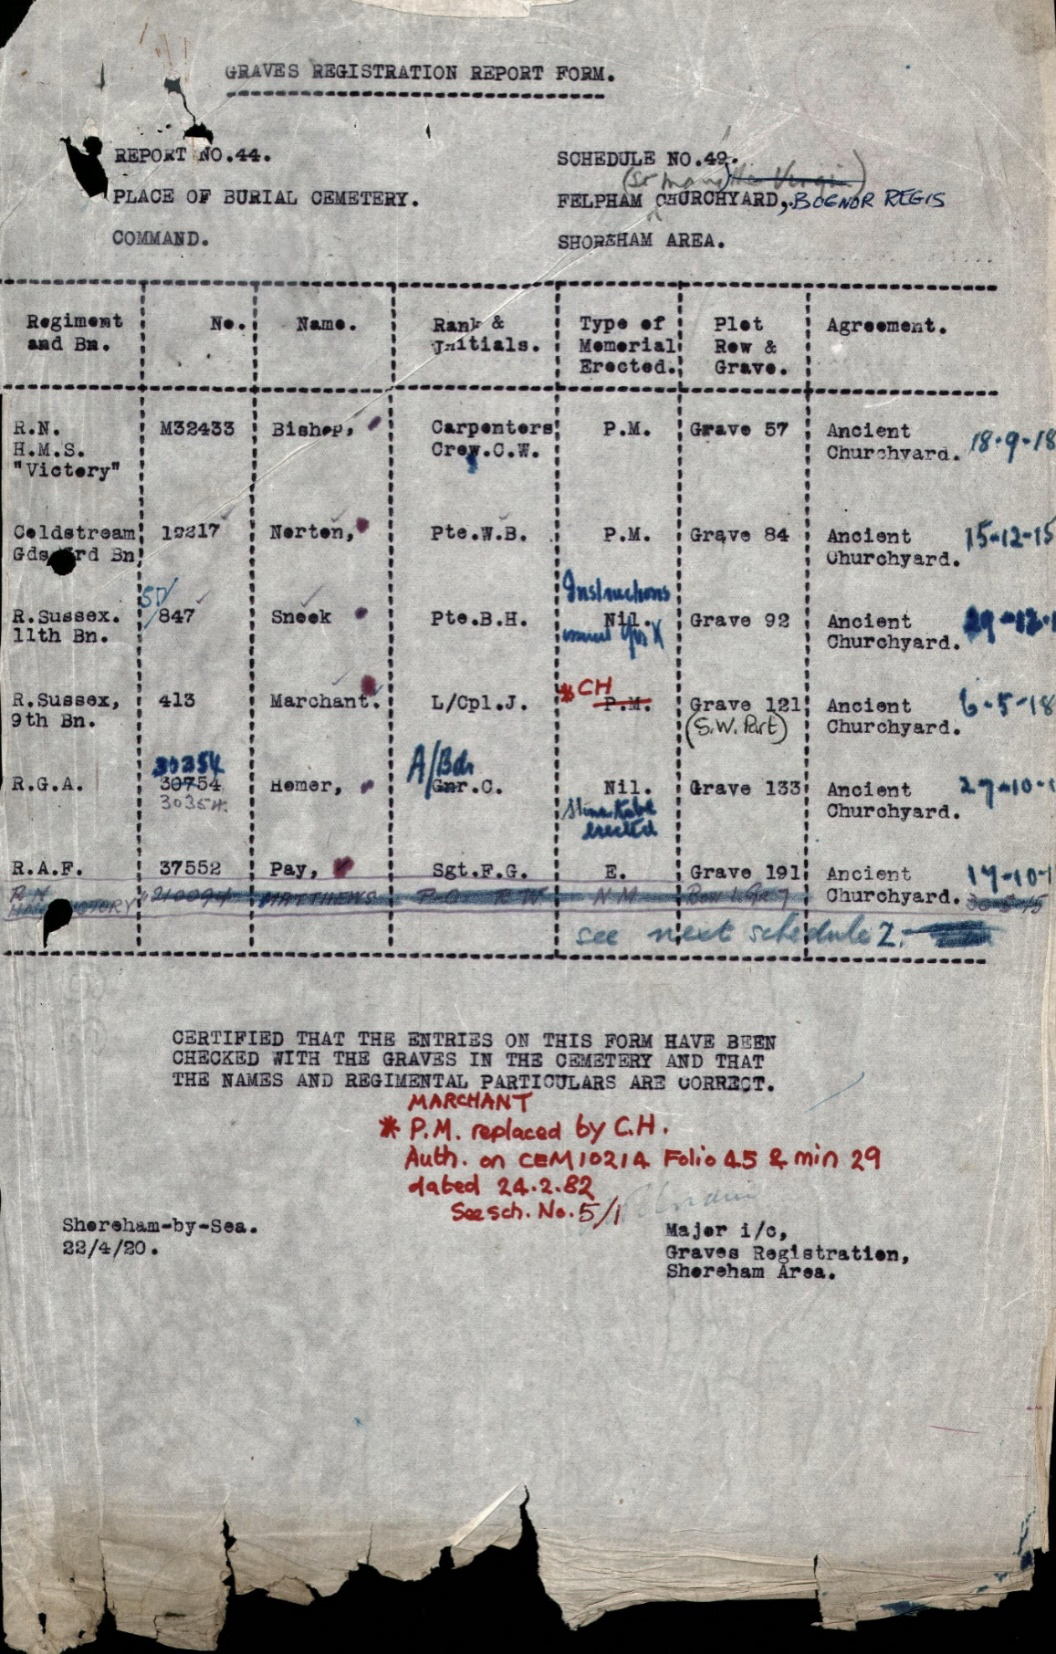 GRAVES REGISTRATION REPORT FORM.
REPORT NO.44.
SCHEDULE NO.49.
(St Mary the Virgin)
PLACE OF BURIAL CEMETERY.
FELPHAM CHURCHYARD, BOGNOR REGIS
COMMAND.
SHOREHAM AREA.
Regiment and Bn. No. Name. Rank & Initials. Type of Memorial Erected. Plot Row & Grave. Agreement.
R.N. M32433 Bishop, Carpenters P.M. Grave 57 Ancient 18.9.18
H.M.S. Crew.C.W. Churchyard.
"Victory"
Coldstream 12217 Norton, Pte.W.B. P.M. Grave 84 Ancient 15-12-15
Gds 3rd Bn Churchyard.
SD/ Instructions
R.Sussex. 847 Snook Pte.B.H. Nil. Grave 92 Ancient
11th Bn. issued Churchyard.
* CH
R.Sussex, 413 Marchant. L/Cpl.J. P.M. Grave 121 Ancient 6.5.18
9th Bn. (S.W. Part) Churchyard.
30354 A/Bdr
R.G.A. 30754 Homer, Gnr.C. Nil. Grave 133 Ancient 27-10-1
30354 erected Churchyard.
R.A.F. 37552 Pay, Sgt.F.G. E. Grave 191 Ancient 17-10-1
Churchyard.
R.N. 210094 MATTHEWS P.O. R W N M Row 1. Gr 7
VICTORY
see next schedule 2.
CERTIFIED THAT THE ENTRIES ON THIS FORM HAVE BEEN
CHECKED WITH THE GRAVES IN THE CEMETERY AND THAT
THE NAMES AND REGIMENTAL PARTICULARS ARE CORRECT.
MARCHANT
* P.M. replaced by C.H.
Auth. on CEM10214 Folio 45 & min 29
dated 24.2.82
See sch. No. 5/1
Shoreham-by-Sea.
22/4/20.
Major i/c,
Graves Registration,
Shoreham Area.